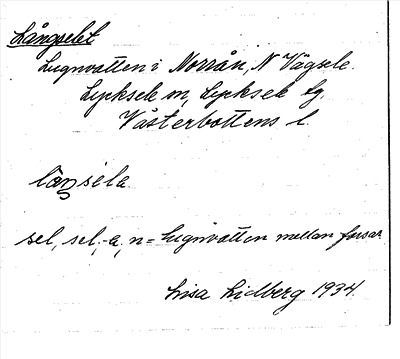 Långselet
Lugnvatten i Norrån, N Vägsele
Lycksele sn, Lycksele tg.
Västerbottens l.
låŋsela
sel, sel, -a, n = Lugnvatten mellan forsar
Lisa Lidberg 1934.